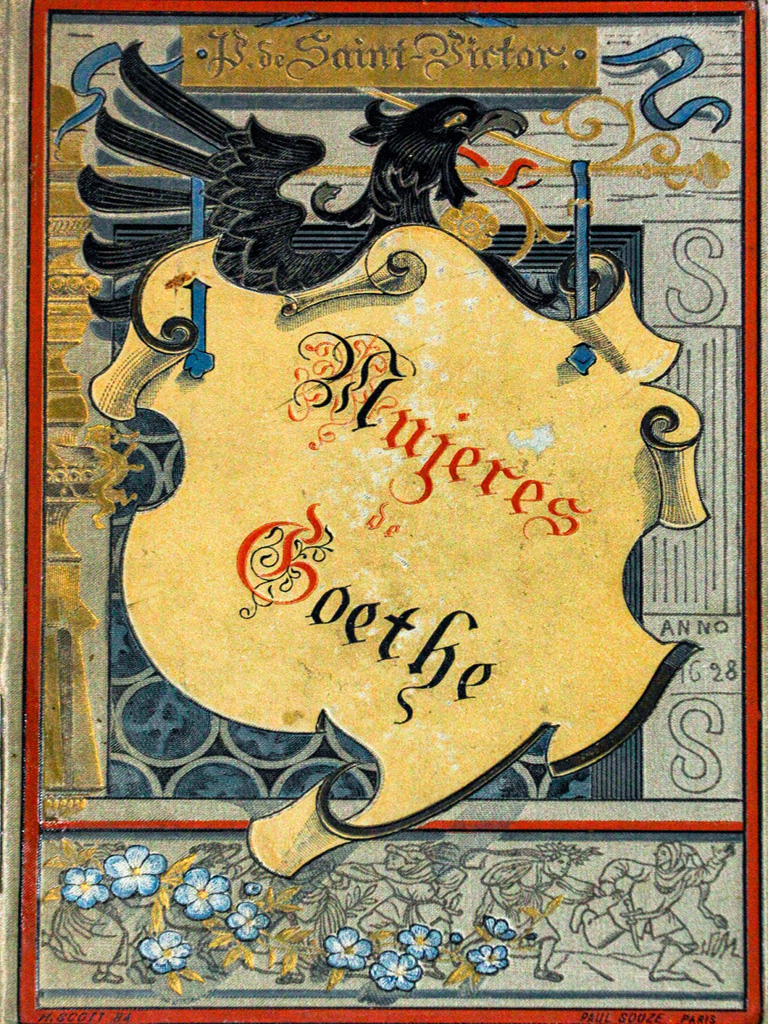 P. de Saint-Victor.
S
Mujeres
de
Goethe
ANNO
1628
S
H. SCOTT 84
PAUL SOUZE PARIS